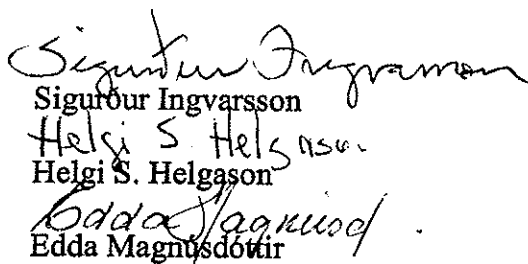 Sigurður Ingvarsson
Sigurður Ingvarsson
Helgi S. Helgason
Helgi S. Helgason
Edda Magnúsd.
Edda Magnúsdóttir